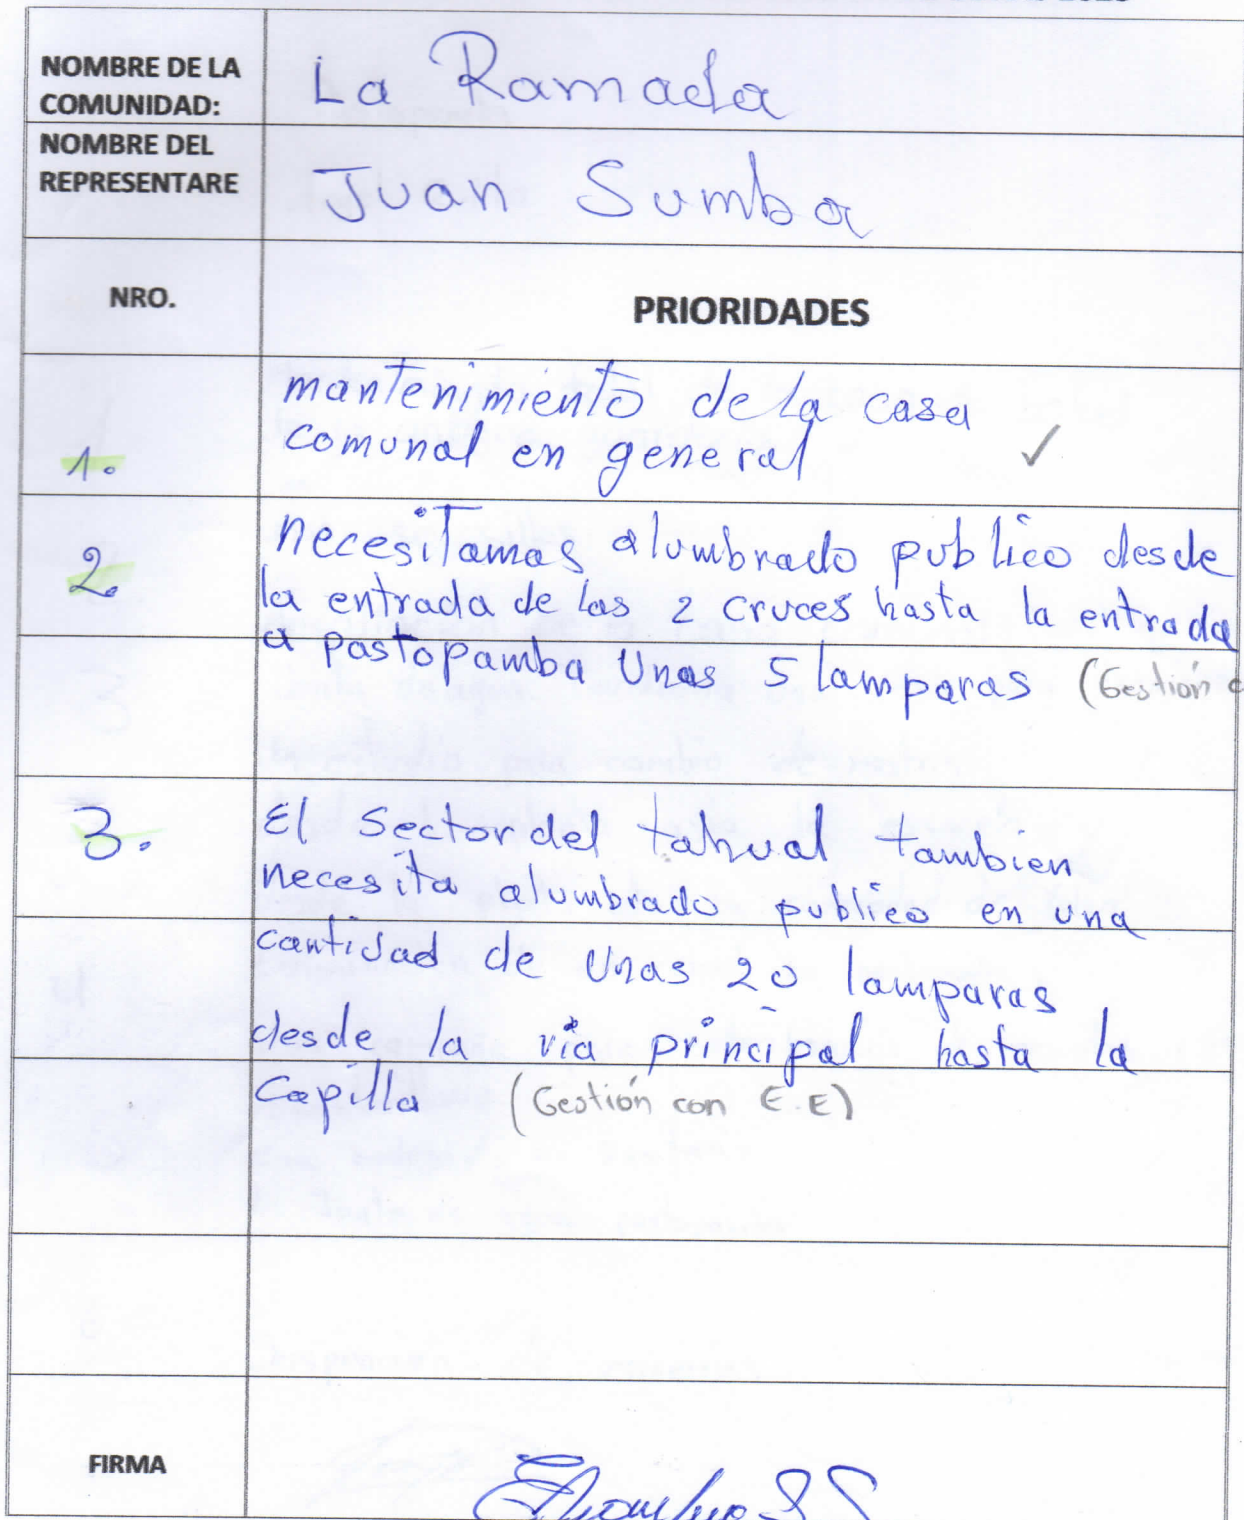 NOMBRE DE LA
COMUNIDAD:
La Ramada
NOMBRE DEL
REPRESENTARE
Juan Sumba
NRO.
PRIORIDADES
1.
mantenimiento de la casa
comunal en general ✓
2.
necesitamos alumbrado publico desde
la entrada de las 2 cruces hasta la entrada
a pastopamba Unas 5 lamparas (Gestión
3.
El Sector del tahual tambien
necesita alumbrado publico en una
cantidad de Unas 20 lamparas
desde la via principal hasta la
Capilla (Gestión con E.E)
FIRMA